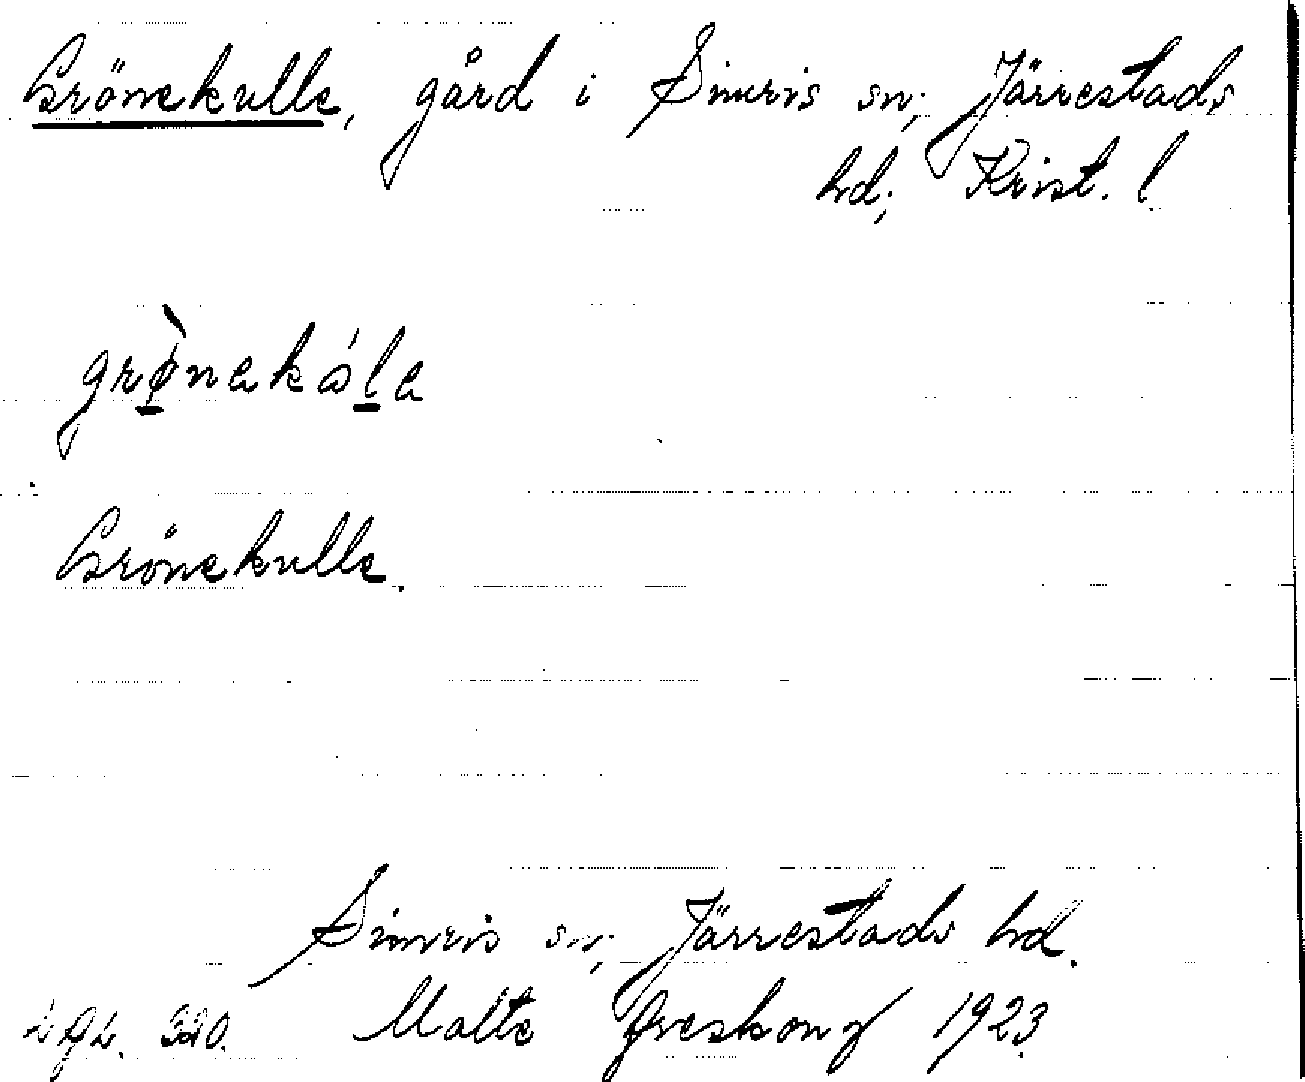 Grönekulle, gård i Simris sn; Järrestads
hd; Krist. l.
grø̀nekǻla
Grönekulle.
Simris sn; Järrestads hd.
320. Malte 1923.